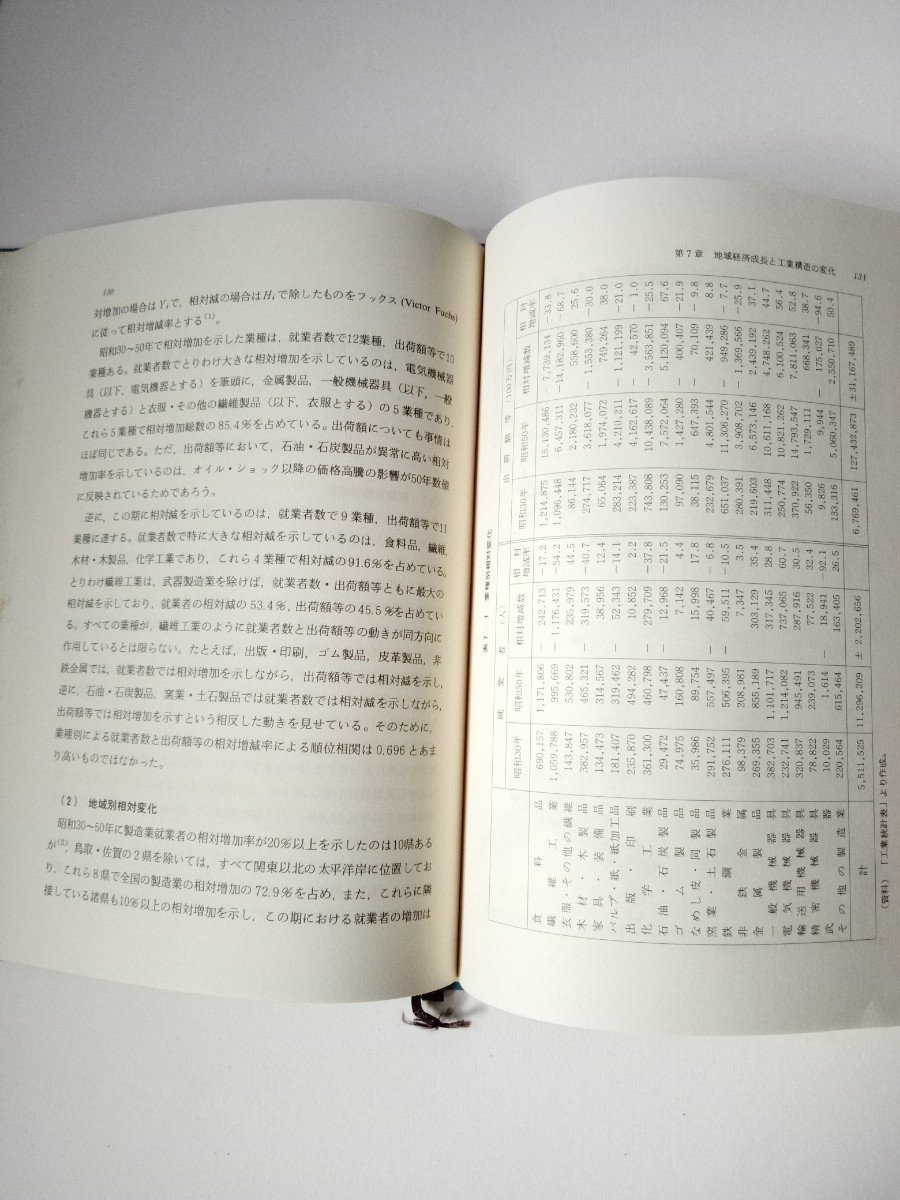 130
対増加の場合はYiで，相対減の場合はHiで除したものをフックス (Victor Fuchs)
に従って相対増減率とする(1)。
昭和30～50年で相対増加を示した業種は，就業者数で12業種，出荷額等で10
業種ある。就業者数でとりわけ大きな相対増加を示しているのは，電気機械器
具（以下，電気機器とする）を筆頭に，金属製品，一般機械器具（以下，一般
機器とする）と衣服・その他の繊維製品（以下，衣服とする）の5業種であり，
これら5業種で相対増加総数の85.4％を占めている。出荷額についても事情は
ほぼ同じである。ただ，出荷額等において，石油・石炭製品が異常に高い相対
増加率を示しているのは，オイル・ショック以降の価格高騰の影響が50年数値
に反映されているためであろう。
逆に，この期に相対減を示しているのは，就業者数で9業種，出荷額等で11
業種に達する。就業者数で特に大きな相対減を示しているのは，食料品，繊維，
木材・木製品，化学工業であり，これら4業種で相対減の91.6％を占めている。
とりわけ繊維工業は，武器製造業を除けば，就業者数・出荷額等ともに最大の
相対減を示しており，就業者の相対減の53.4％，出荷額等の45.5％を占めてい
る。すべての業種が，繊維工業のように就業者数と出荷額等の動きが同方向に
作用しているとは限らない。たとえば，出版・印刷，ゴム製品，皮革製品，非
鉄金属では，就業者数では相対増加を示しながら，出荷額等では相対減を示し，
逆に，石油・石炭製品，窯業・土石製品では就業者数では相対減を示しながら，
出荷額等では相対増加を示すという相反した動きを見せている。そのために，
業種別による就業者数と出荷額等の相対増減率による順位相関は0.696とあま
り高いものではなかった。
(2) 地域別相対変化
昭和30～50年に製造業就業者の相対増加率が20％以上を示したのは10県ある
が(2)，鳥取・佐賀の2県を除いては，すべて関東以北の太平洋岸に位置してお
り，これら8県で全国の製造業の相対増加の72.9％を占め，また，これらに隣
接している諸県も10％以上の相対増加を示し，この期における就業者の増加は
第7章 地域経済成長と工業構造の変化 131
表7-1 業種別相対変化
就業者 (人) 出荷額等 (100万円)
昭和30年 昭和50年 相対増減数 相対増減率 昭和30年 昭和50年 相対増減数 相対増減率
食料品 690,157 1,171,806 － 242,713 －17.2 1,214,875 15,130,486 － 7,739,134 －33.8
繊維工業 1,059,788 995,669 － 1,176,431 －54.2 1,096,448 6,457,311 －14,182,960 －68.7
衣服・その他の繊維 143,847 530,802 235,979 44.5 86,144 2,180,232 558,600 25.6
木材・木製品 382,957 465,321 － 319,573 －40.7 274,717 3,618,077 － 1,553,380 －30.0
家具・装備品 134,473 314,567 38,956 12.4 65,064 1,974,072 749,264 38.0
パルプ・紙・紙加工品 181,407 319,462 － 52,343 －14.1 283,214 4,210,211 － 1,121,199 －21.0
出版・印刷 235,870 494,282 10,852 2.2 223,387 4,162,617 － 42,570 － 1.0
化学工業 361,300 460,798 － 279,709 －37.8 743,808 10,438,089 － 3,563,851 －25.5
石油・石炭製品 29,472 47,437 － 12,968 －21.5 130,253 7,572,064 5,120,094 67.6
ゴム製品 74,975 160,808 7,142 4.4 97,090 1,427,280 － 400,407 －21.9
なめし皮・同製品 35,986 89,754 15,998 17.8 38,115 647,393 － 70,109 － 9.8
窯業・土石製品 291,752 557,497 － 40,467 － 6.8 232,679 4,801,544 421,439 8.8
鉄鋼 276,111 506,395 － 59,511 －10.5 651,037 11,306,277 － 949,286 － 7.7
非鉄金属 98,379 208,981 7,347 3.5 280,391 3,908,702 － 1,369,566 －25.9
金属製品 269,355 855,189 303,129 35.4 219,603 6,573,146 2,439,192 37.1
一般機械器具 382,703 1,101,717 317,345 28.8 311,448 10,611,168 4,748,262 44.7
電気機械器具 232,741 1,214,082 737,065 60.7 250,774 10,821,262 6,100,524 56.4
輸送用機械器具 320,837 945,491 287,916 30.5 370,922 14,793,547 7,811,063 52.8
精密機械器具 78,822 239,073 77,522 32.4 56,350 1,729,111 668,341 38.7
武器 10,029 1,614 － 18,941 －92.1 9,826 9,944 － 175,027 －94.6
その他の製造業 220,564 615,464 163,405 26.5 133,316 5,060,347 2,550,710 50.4
計 5,511,525 11,296,209 ± 2,202,656 6,769,461 127,432,873 ±31,167,489
(資料) 「工業統計表」より作成。